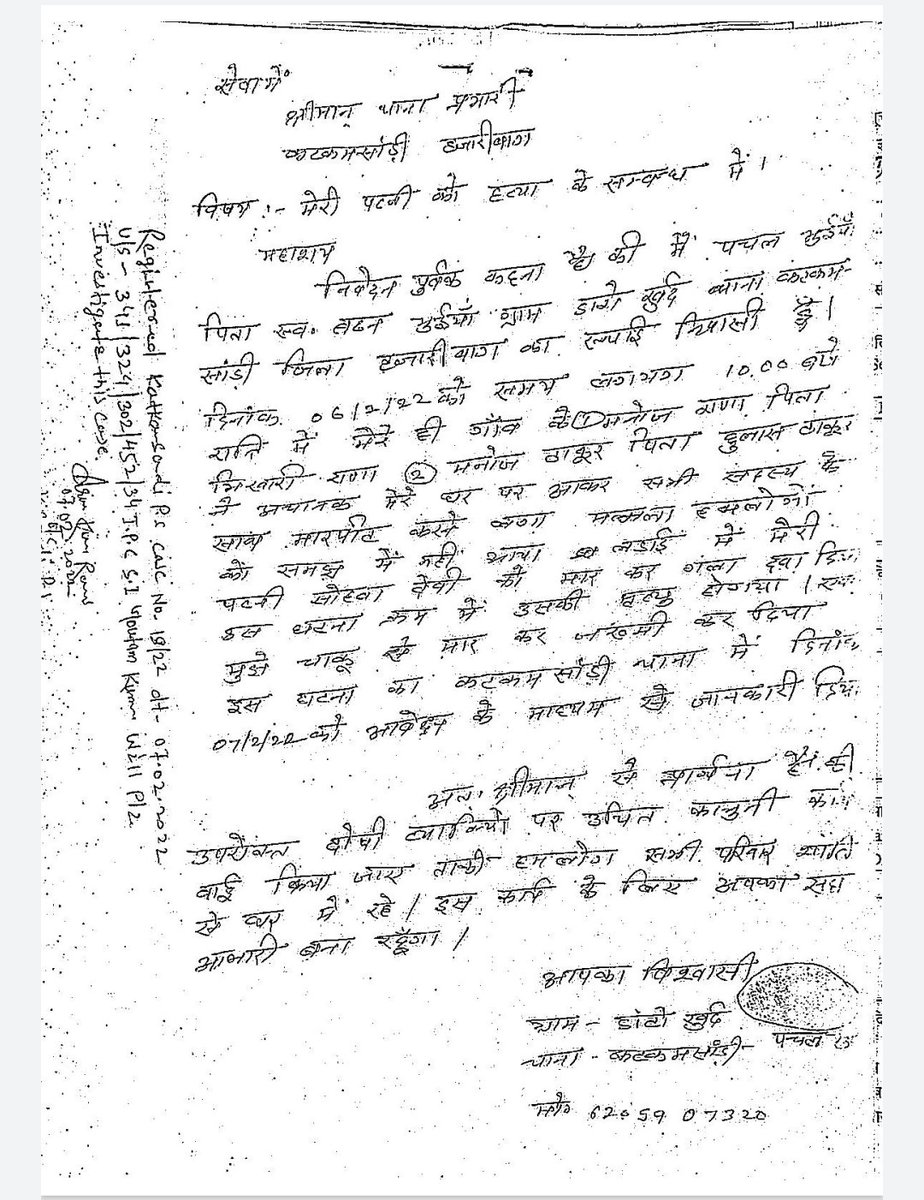 सेवा में
श्रीमान् थाना प्रभारी
कटकमसांड़ी हजारीबाग
विषय :- मेरी पत्नी को हत्या के सम्बन्ध में।
महाशय
निवेदन पुर्वक कहना है की मैं पचल भुईयाँ
पिता स्व॰ भुईयाँ ग्राम खुर्द थाना कटकम-
सांडी जिला हजारीबाग का हूँ।
दिनांक 06/2/22 को समय लगभग 10.00 बजे
रात्रि में मेरे ही गाँव के ① मनोज राणा पिता
भिखारी राणा ② मनोज ठाकुर पिता हुलास ठाकुर
ने अचानक मेरे घर पर आकर सभी सदस्य के
साथ मारपीट करने लगा हमलोगों
को समझ में नहीं आया लडाई में मेरी
पत्नी देवी को मार कर गला दवा
इस घटना क्रम में उसकी मृत्यु होगया।
मुझे चाकू से मार कर जख्मी कर दिया
इस घटना का कटकमसांड़ी थाना में
07/2/22 को आवेदन के माध्यम से जानकारी
अतः श्रीमान् से प्रार्थना है की
उपरोक्त दोषी व्याक्तियो पर उचित कानुनी
वाई किया जाए ताकी हमलोग सभी परिवार शांति
से घर में रहे। इस कार्य के लिए आपका सदा
आभारी बना रहूँगा।
आपका विश्वासी
ग्राम - खुर्द
थाना - कटकमसांड़ी
पचल
मो॰ 62059 07320
Registered Katkamsandi P.S. Case No. 18/22 dt- 07.02.2022
U/S - 341/324/302/452/34 I.P.C S.I Kumar Will Plz.
Investigate this case.
07.02.2022